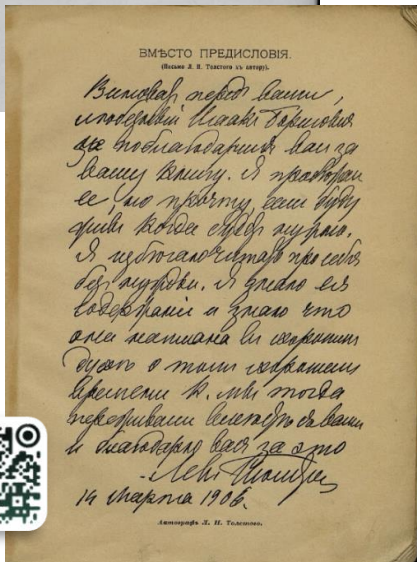 ВМѢСТО ПРЕДИСЛОВІЯ.
(Письмо Л. Н. Толстого къ автору).
Виноватъ передъ вами,
любезный Исаакъ Борисовичъ
не поблагодаривъ васъ за
вашу книгу. Я просмотрѣлъ
ее, но прочту, если буду
живъ когда будетъ нужно.
Я избѣгаю читать про себя
безъ нужды. Я знаю ея
содержаніе и знаю что
она написана въ хорошемъ
духѣ о томъ хорошемъ
времени к. мы тогда
переживали вмѣстѣ съ вами
и благодарю васъ за это
Левъ Толстой
14 Марта 1906.
Автографъ Л. Н. Толстого.